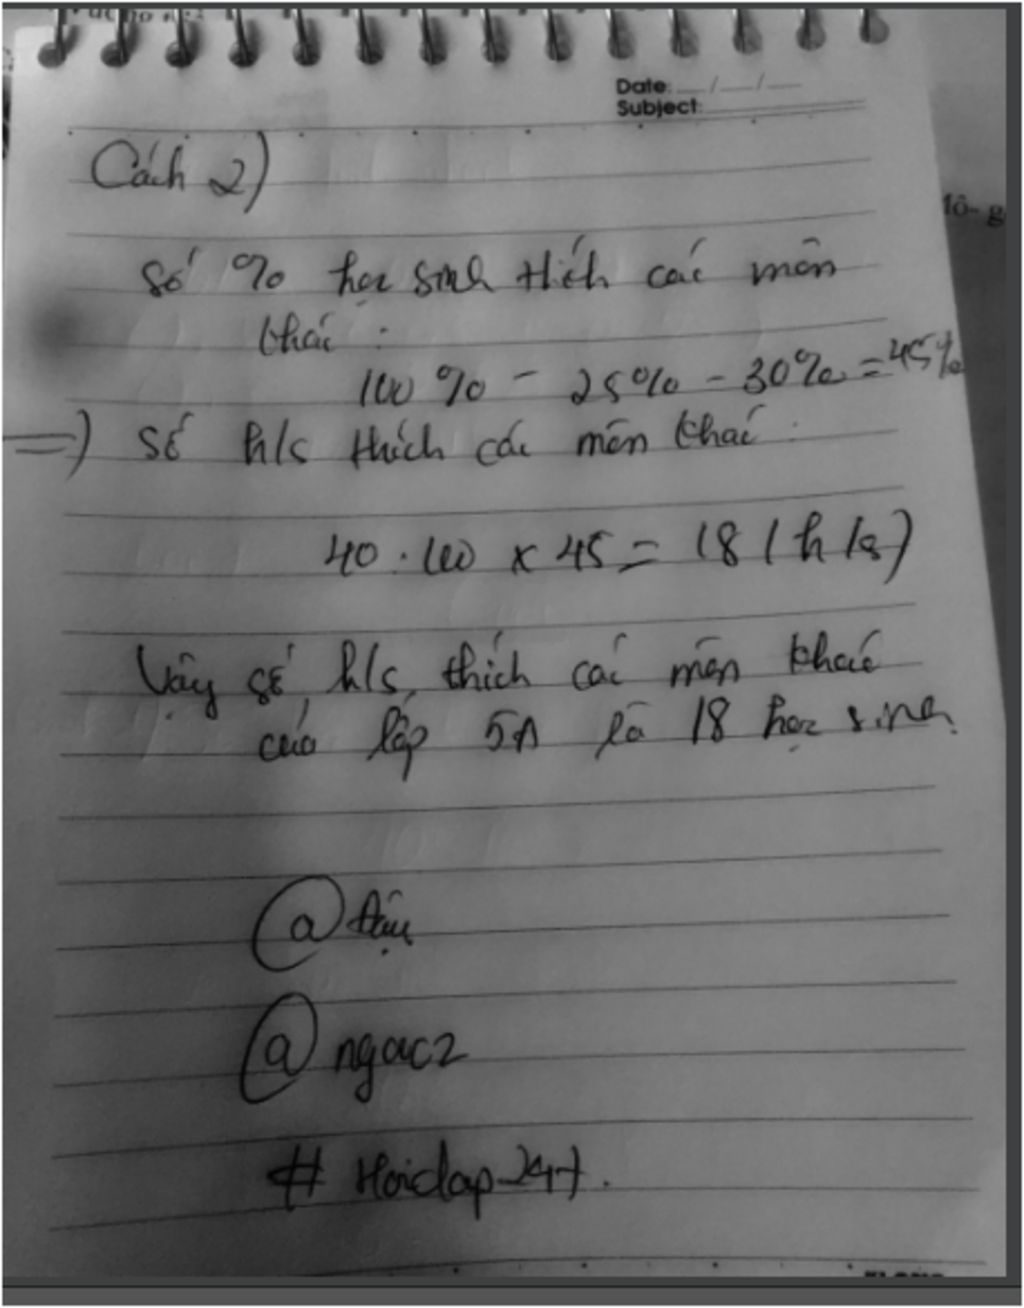 Date: __/__/__
Subject:
Cách 2)
số % học sinh thích các môn
khác :
100% - 25% - 30% = 45%
=) Số h/s thích các môn khác :
40 : 100 x 45 = 18 (h/s)
Vậy số h/s thích các môn khác
của lớp 5A là 18 học sinh.
@ Đậu
@ ngocc2
# Hoidap247.
lô- g